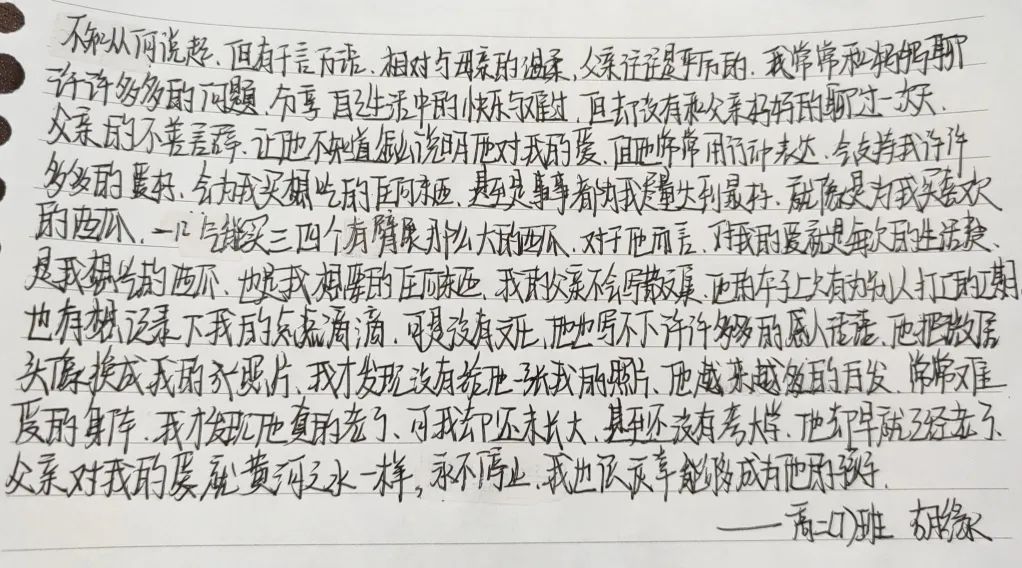 不知从何说起，但有千言万语，相对与母亲的温柔，父亲往往是严厉的，我常常和妈妈聊
许许多多的问题，分享自己生活中的快乐与难过，但却没有和父亲好好的聊过一次天，
父亲的不善言辞，让他不知道怎么说明他对我的爱，但他常常用行动表达，会支持我许许
多多的爱好，会为我买想吃的任何东西，甚至是事事都为我尽量达到最好，就像是为我买喜欢
的西瓜，一口气能买三四个有臂展那么大的西瓜，对于他而言，对我的爱就是每次的生活费，
是我想吃的西瓜，也是我想要的任何东西，我的父亲不会写散文集，他的本子上只有为别人打工的工期，
也有想记录下我的点点滴滴，可是没有文化，他也写不下许许多多的感人话语，他把微信
头像换成我的照片，我才发现没有给他一张我的照片，他越来越多的白发，常常难
受的身体，我才发现他真的老了，可我却还未长大，甚至还没有考大学，他却早就已经老了，
父亲对我的爱就黄河之水一样，永不停止，我也很庆幸能够成为他的孩子.
——高二(7)班 胡缘